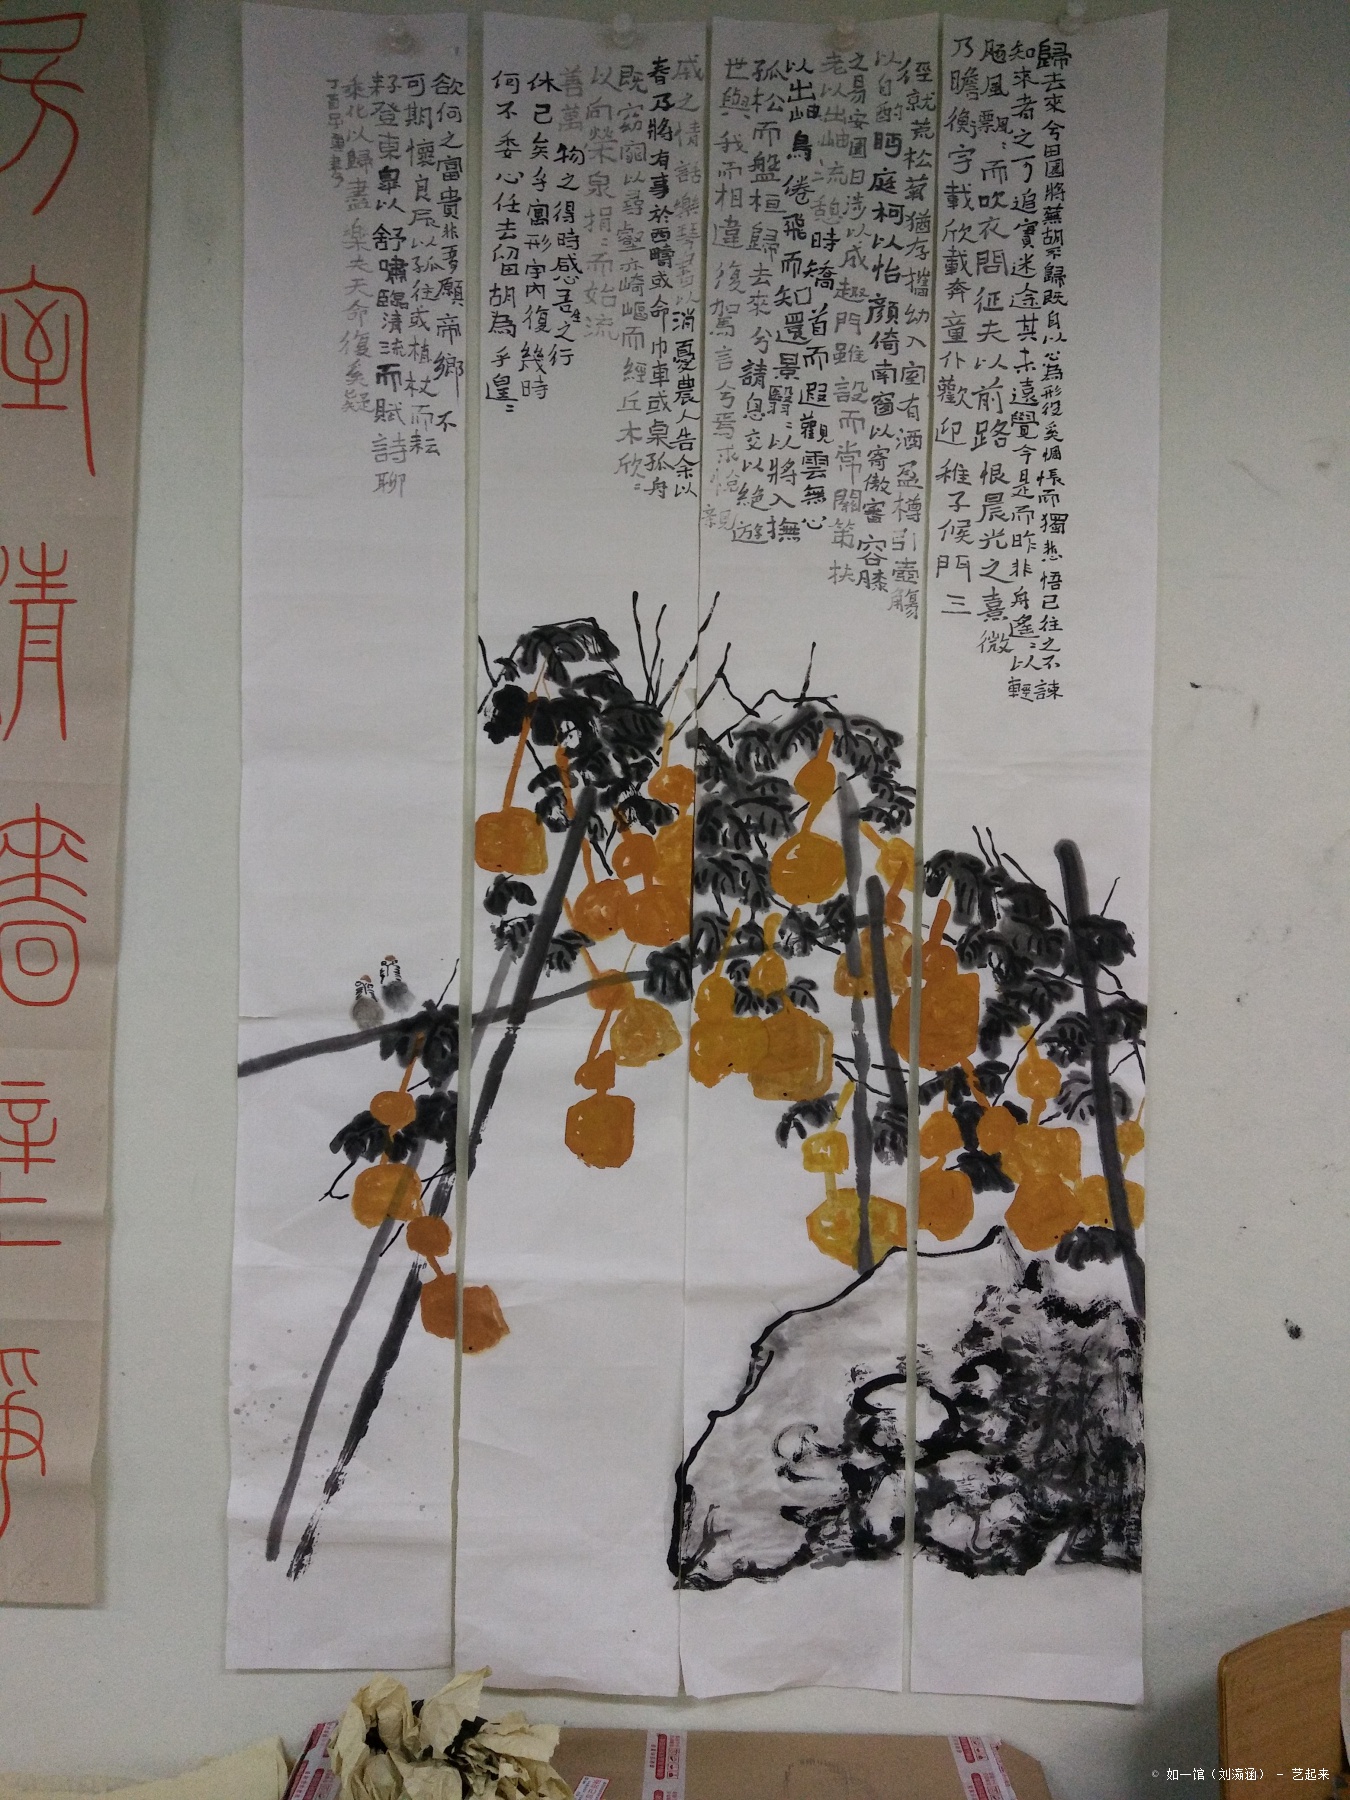 歸去來兮田園將蕪胡不歸既自以心為形役奚惆悵而獨悲悟已往之不諫
知來者之可追實迷途其未遠覺今是而昨非舟遙：以輕
颺風飄：而吹衣問征夫以前路恨晨光之熹微
乃瞻衡宇載欣載奔童仆歡迎稚子候門三
徑就荒松菊猶存攜幼入室有酒盈樽引壺觴
以自酌眄庭柯以怡顏倚南窗以寄傲審容膝
之易安園日涉以成趣門雖設而常關第扶
老以出岫流憩時矯首而遐觀雲無心
以出岫鳥倦飛而知還景翳：以將入撫
孤松而盤桓歸去來兮請息交以絕遊
世與我而相違復駕言兮焉求悅親
戚之情話樂琴書以消憂農人告余以
春乃將有事於西疇或命巾車或桌孤舟
既窈窕以尋壑亦崎嶇而經丘木欣：
以向榮泉捐：而始流
善萬物之得時感吾生之行
休已矣乎寓形宇內復幾時
何不委心任去留胡為乎遑：
欲何之富貴非吾願帝鄉不
可期懷良辰以孤往或植杖而耘
耔登東皋以舒嘯臨清流而賦詩聊
乘化以歸盡樂夫天命復奚疑
丁酉
房室清牆壁淨
© 如一馆（刘瀛涵） - 艺起来